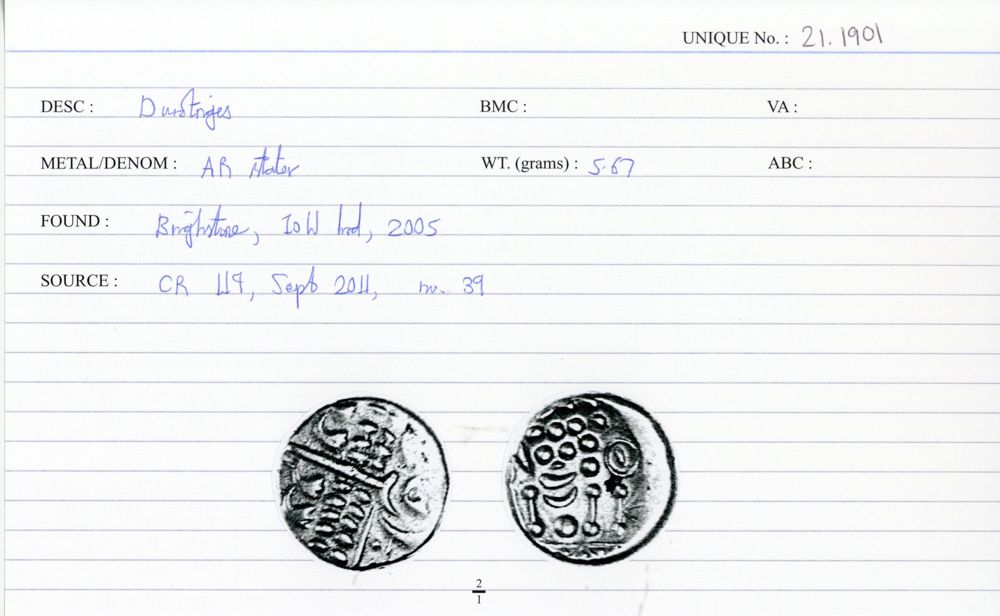 UNIQUE No. : 21.1901
DESC : Durotriges BMC : VA :
METAL/DENOM : AR stater WT. (grams) : 5.67 ABC :
FOUND : Brighstone, IoW hrd, 2005
SOURCE : CR 119, Sept 2011, no. 39
2
1